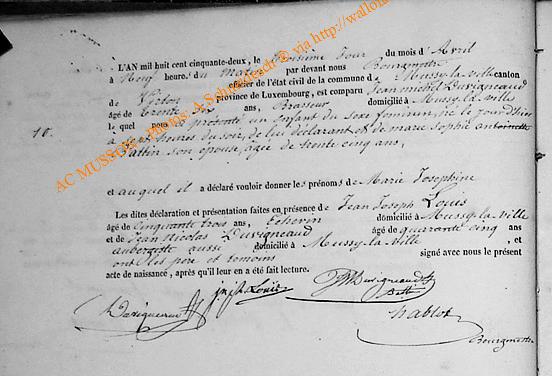 L'AN mil huit cent cinquante-deux, le troisième jour, du mois d'Avril
à Neuf heure. du matin par devant nous Bourgmestre
officier de l'état civil de la commune de Mussy-la-ville canton
de Virton province de Luxembourg, est comparu Jean michel Duvigneaud
âgé de trente six ans, Brasseur domicilié à Mussy-la-ville
lequel nous a présenté un enfant du sexe féminin, né le jour d'hier
10.
à heures du soir, de lui déclarant et de marie Sophie antoinette
Pattin son épouse, âgée de trente cinq ans,
et auquel il a déclaré vouloir donner les prénoms de Marie Josephine
Les dites déclaration et présentation faites en présence de Jean Joseph Louis
âgé de Cinquante trois ans, Echevin domicilié à Mussy-la-ville
et de Jean Nicolas Duvigneaud âgé de quarante cinq ans
aubergiste aussi domicilié à Mussy-la-ville, et
ont les père et temoins signé avec nous le présent
acte de naissance, après qu'il leur en a été fait lecture.
Duvigneaud Louis Duvigneaud
hablot
Bourgmestre
AC MUSSON - Photos: A. Schleimech ® via http://wallon